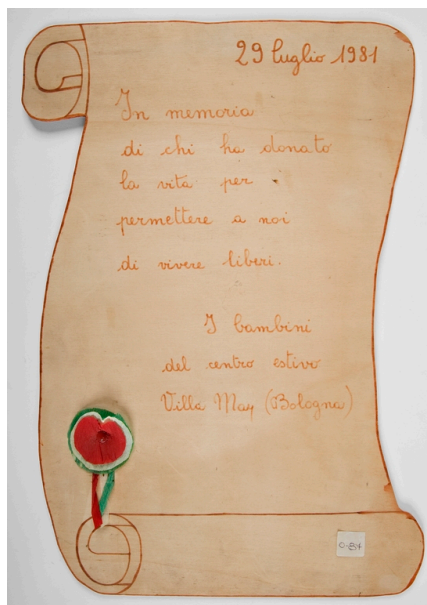 29 luglio 1981
In memoria
di chi ha donato
la vita per
permettere a noi
di vivere liberi.
I bambini
del centro estivo
Villa May (Bologna)